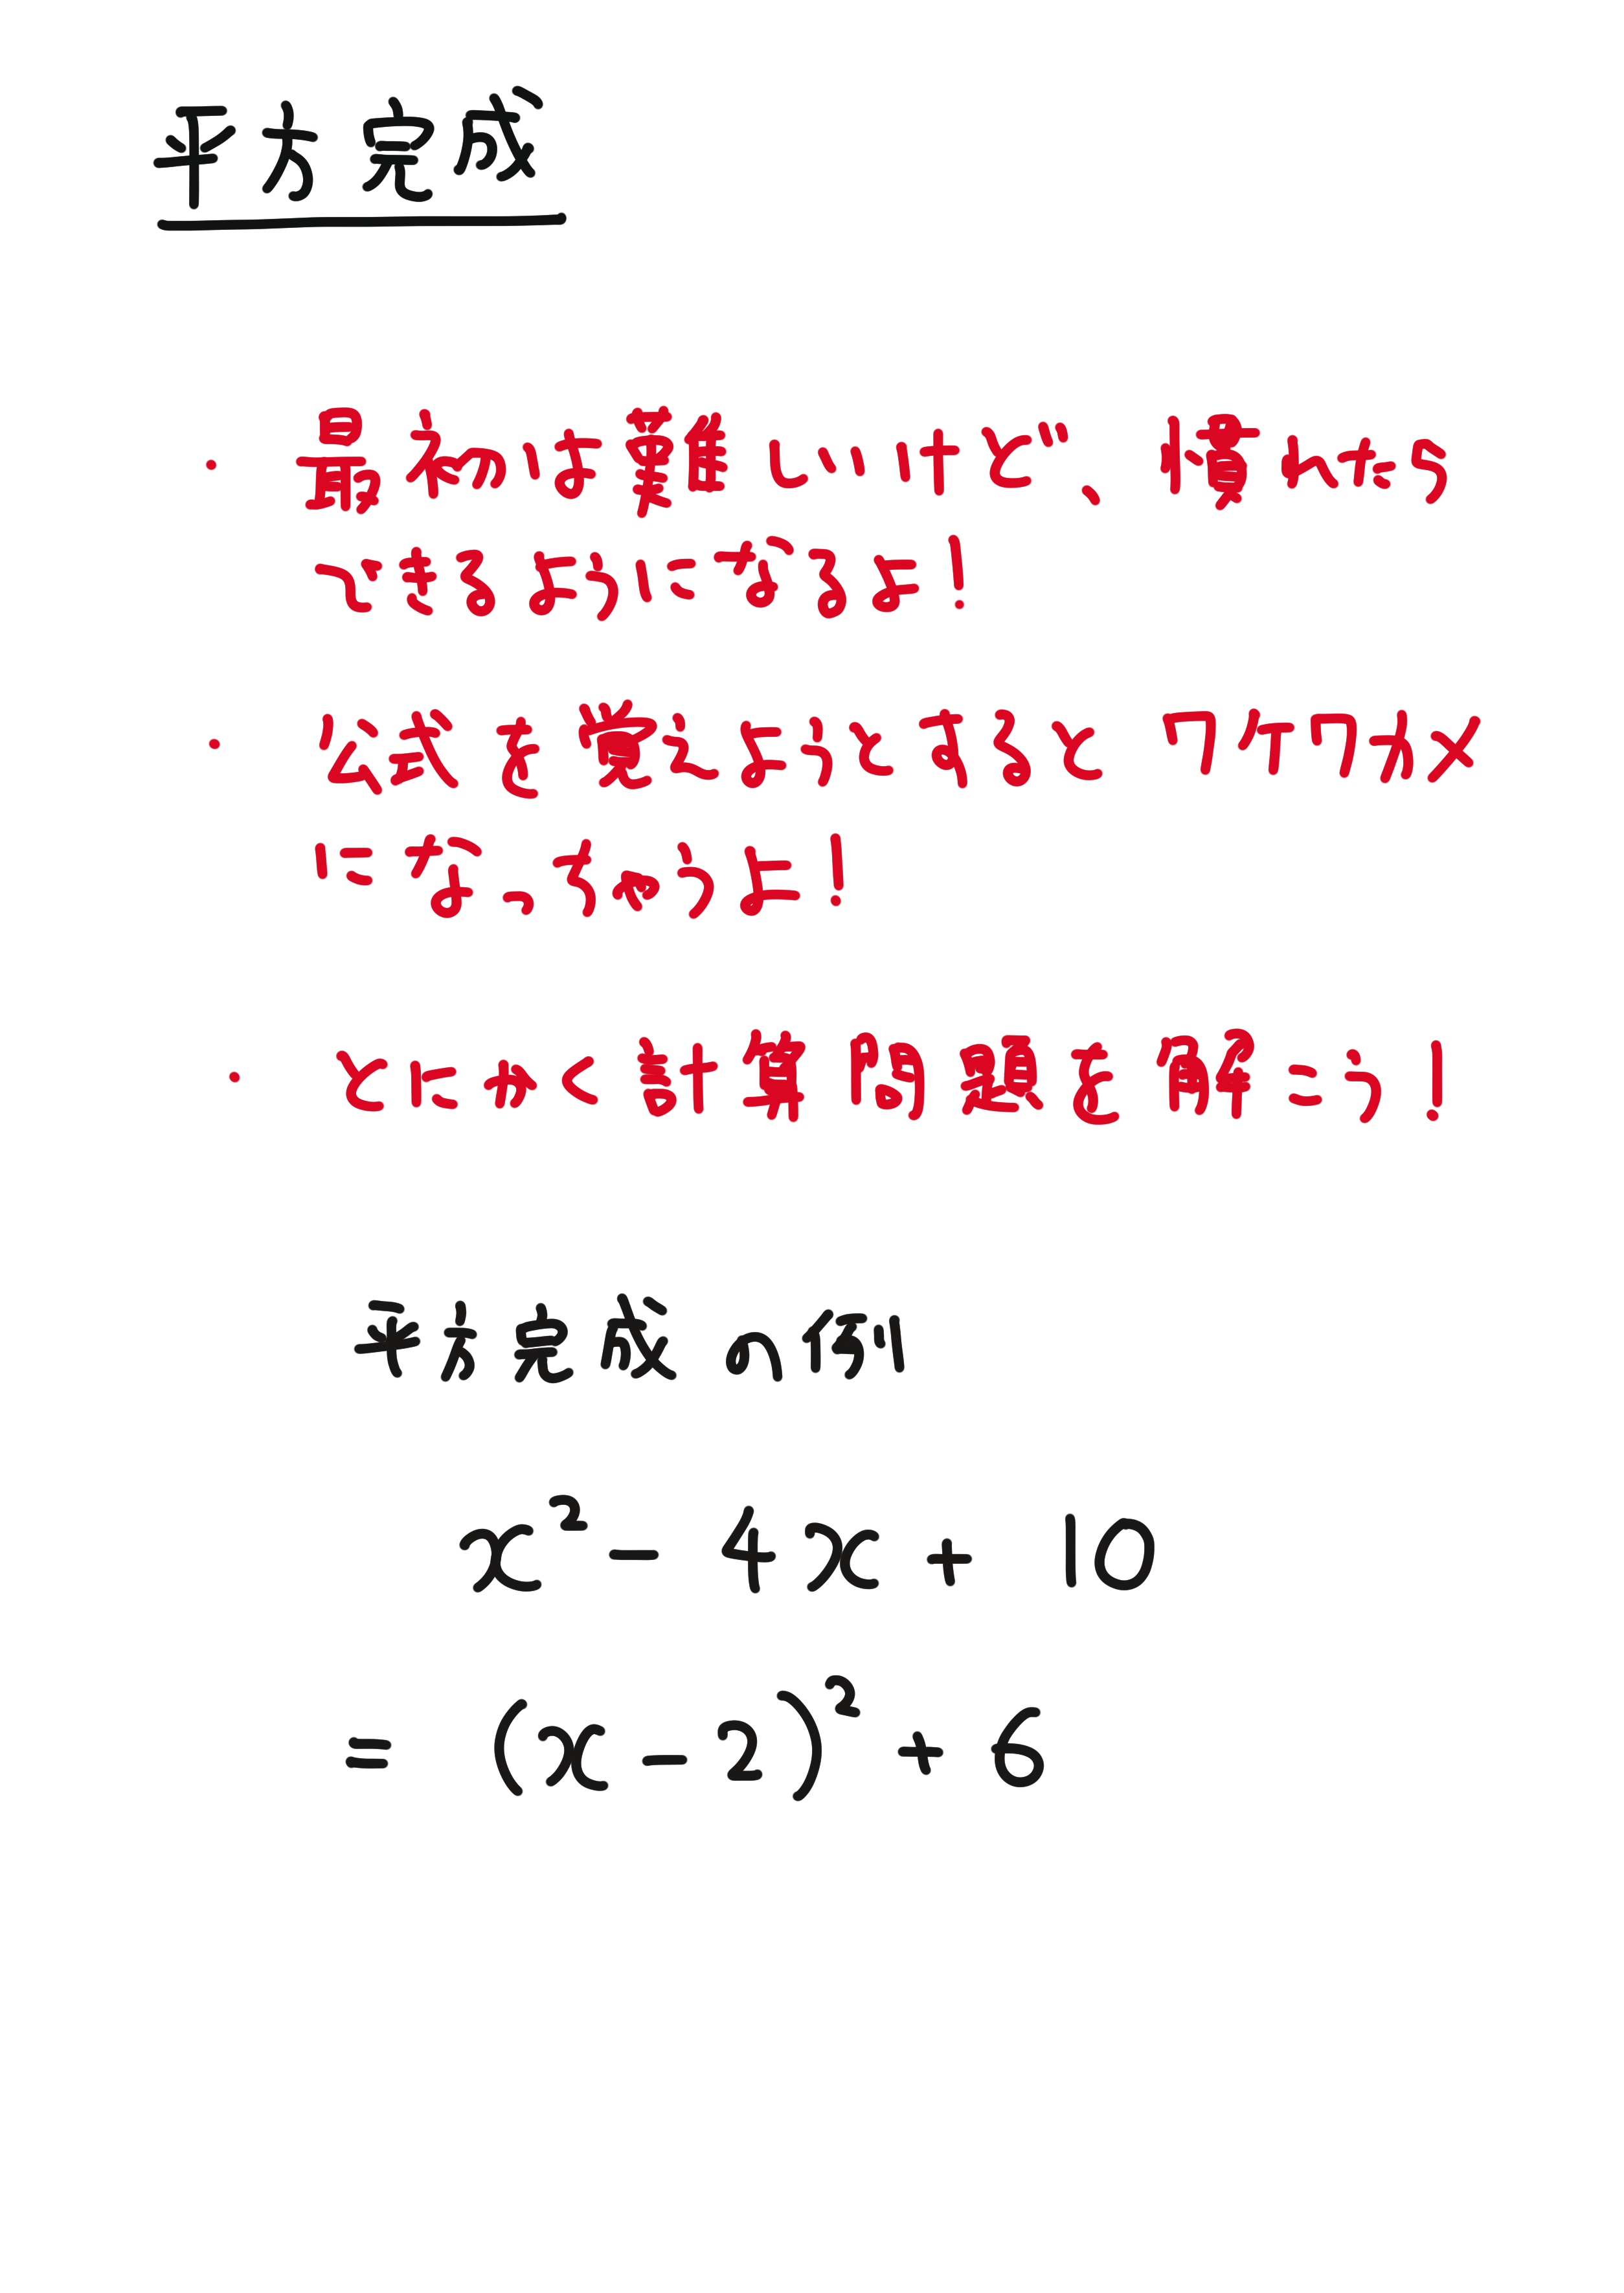 平方完成
・最初は難しいけど、慣れたら
できるようになるよ!
・公式を覚えようとするとワケワカメ
になっちゃうよ!
・とにかく計算問題を解こう!
平方完成の例
x² - 4x + 10
= (x - 2)² + 6